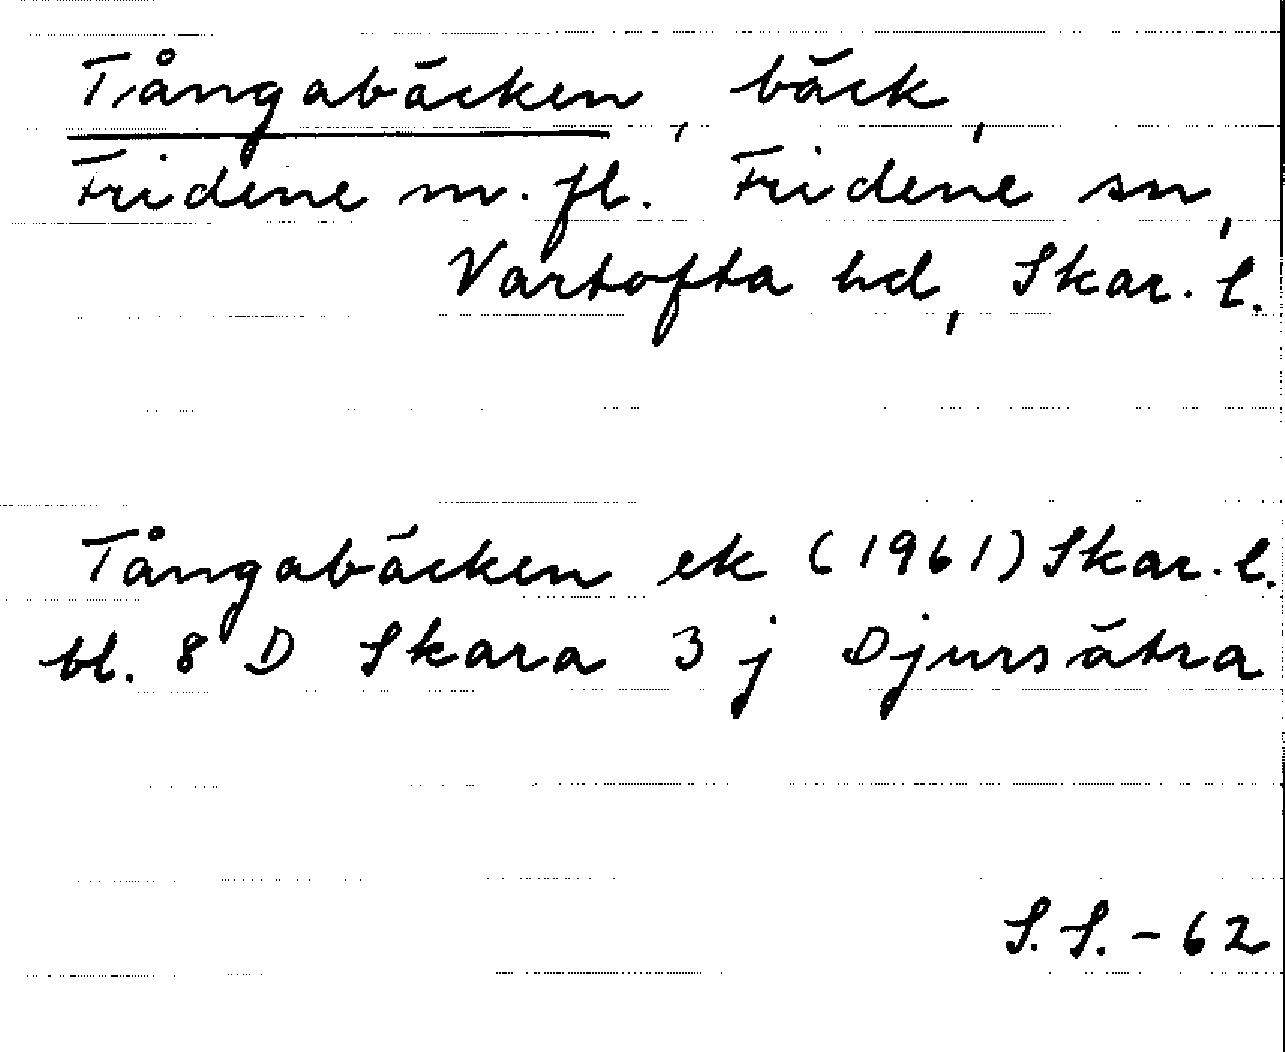 Tångabäcken, bäck,
Fridene m. fl. Fridene sn,
Vartofta hd, Skar. l.
Tångabäcken ek (1961) Skar. l.
bl. 8 D Skara 3 j Djursätra
S. S. - 62